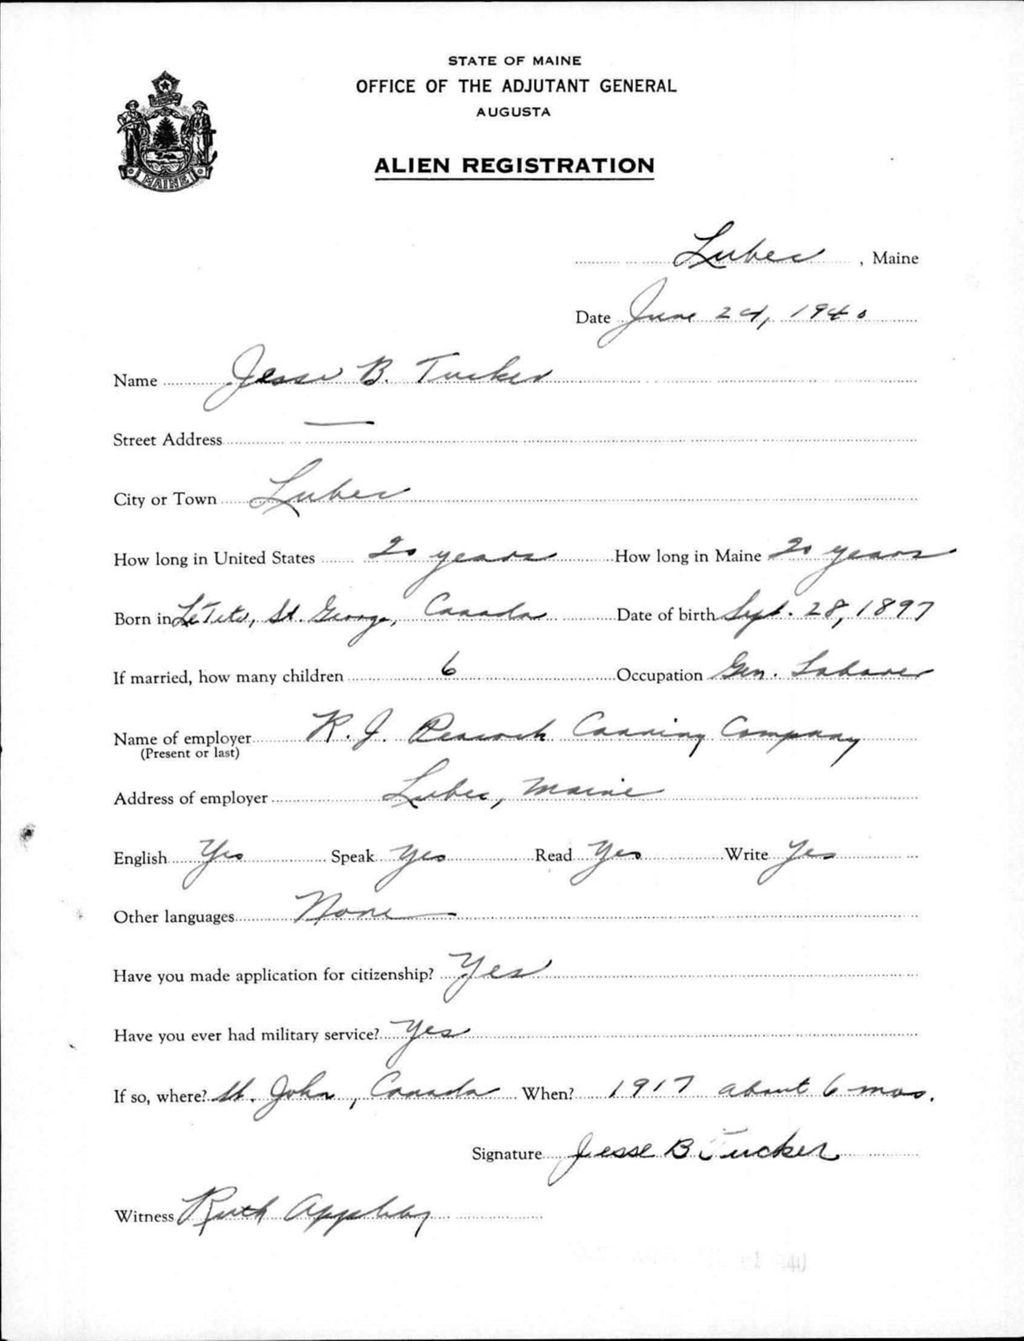 STATE OF MAINE
OFFICE OF THE ADJUTANT GENERAL
AUGUSTA
MAINE
ALIEN REGISTRATION
Lubec, Maine
Date June 24, 1940
Name Jesse B. Tucker
Street Address —
City or Town Lubec
How long in United States 20 years How long in Maine 20 years
Born in LeTete, St. George, Canada Date of birth Sept. 28, 1897
If married, how many children 6 Occupation Gen. Laborer
Name of employer R. J. Peacock Canning Company
(Present or last)
Address of employer Lubec, Maine
English Yes Speak Yes Read Yes Write Yes
Other languages None
Have you made application for citizenship? Yes
Have you ever had military service? Yes
If so, where? St. John, Canada When? 1917 about 6 mos.
Signature Jesse B Tucker
Witness Ruth Appleby